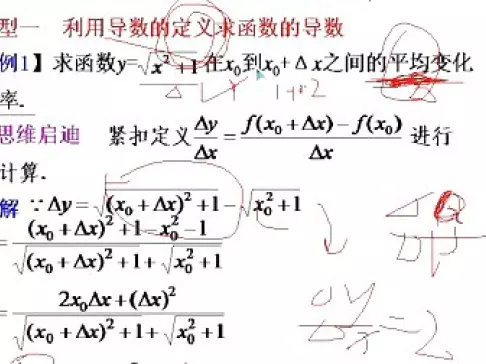 型一 利用导数的定义求函数的导数
例1】求函数y=√(x²+1)在x₀到x₀+Δx之间的平均变化
率.
思维启迪 紧扣定义 Δy/Δx = (f(x₀+Δx)-f(x₀))/Δx 进行
计算.
解 ∵Δy=√((x₀+Δx)²+1)-√(x₀²+1)
= ((x₀+Δx)²+1-x₀²-1)/(√((x₀+Δx)²+1)+√(x₀²+1))
= (2x₀Δx+(Δx)²)/(√((x₀+Δx)²+1)+√(x₀²+1))